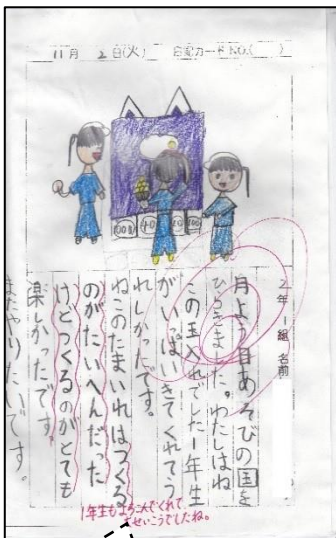 11月 2日(火) 日記カードNO.( )
100 40 0 100
2年 1組 名前
月よう日あそびの国を
ひらきました。わたしはね
この国入れでした1年生
がいっぱいきてくれてう
れしかったです。
ねこのたまいれはつくる
のがたいへんだった
けどつくるのがとても
楽しかったです。
またやりたいです。
1年生もよろこんでくれて
大せいこうでしたね。